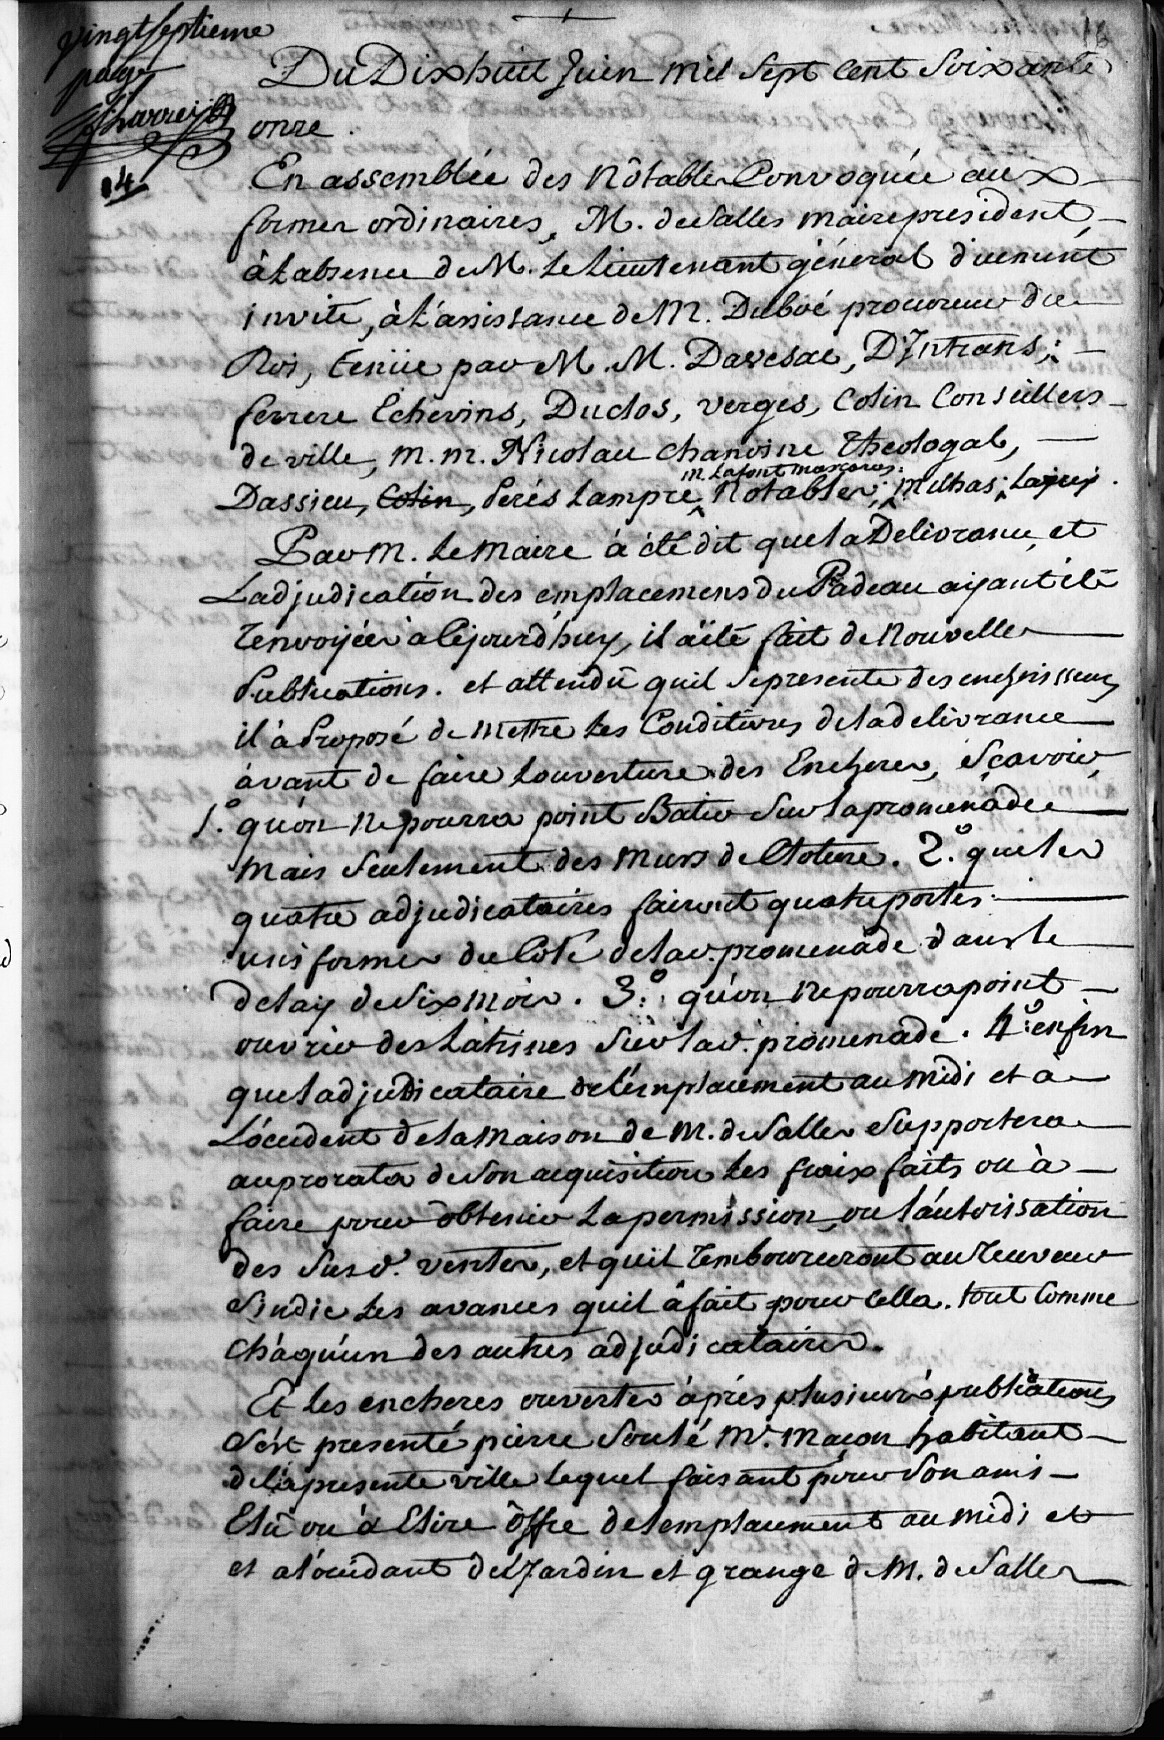 vingt septieme
page
14
18
Du Dix huit Juin mil Sept Cent Soixante
onze
En assemblée des Nôtables Convoquée aux
formes ordinaires, M. de Salles maire president,
à l'absence de M. Le Lieutenant général düement
invité, à l'assistance de M. Duboé procureur du
Roi, tenüe par M. M. Davesac, D'Intrans;
ferrere Echevins, Duclos, verges, Colin Conseillers
de ville, m. m. Nicolau chanoine Theologal,
m. Lafont mascaras:
Dassieu, Colin, Perés Lampre, Notables; milhas;
Par M. Le Maire à été dit que la Delivrance, et
L'adjudication des emplacemens du Padeau aijant été
renvoijée à cejourd'huy, il a été fait de Nouvelles
Publications. et attendû quil Se presente des encherisseurs
il à Proposé de mettre Les Conditions de la delivrance
avant de faire Louverture des Encheres, Sçavoir,
1.º qu'on Ne pourra point Batir Sur la promenâde
mais Seulement des murs de Cloture. 2.º que les
quatre adjudicataires fairont quatre portes
uniformes du Coté de lad. promenade dans le
delay de Six mois. 3.º qu'on Ne pourra point
ouvrir des Latrines Sur lad. promenade. 4.º enfin
que l'adjudicataire de l'emplacement au midi et à
L'occident de la Maison de M. de Salles Supportera
au prorata de Son acquisition Les fraix faits ou à
faire pour obtenir La permission, ou l'autorisation
des Susd. ventes, et quil rembourceront au Receveur
Sindic Les avances quil à fait pour Cella. tout Comme
Cháqu'un des autres adjudicataires.
Et les encheres ouvertes àprés plusieurs publications
S'ést presenté pierre Soulé M.e maçon habitant
de la presente ville Lequel faisant pour Son ami
Elû ou à Elire ôffre de lemplacement au midi et
et a l'occidant de Jardin et grange de M. de Salles